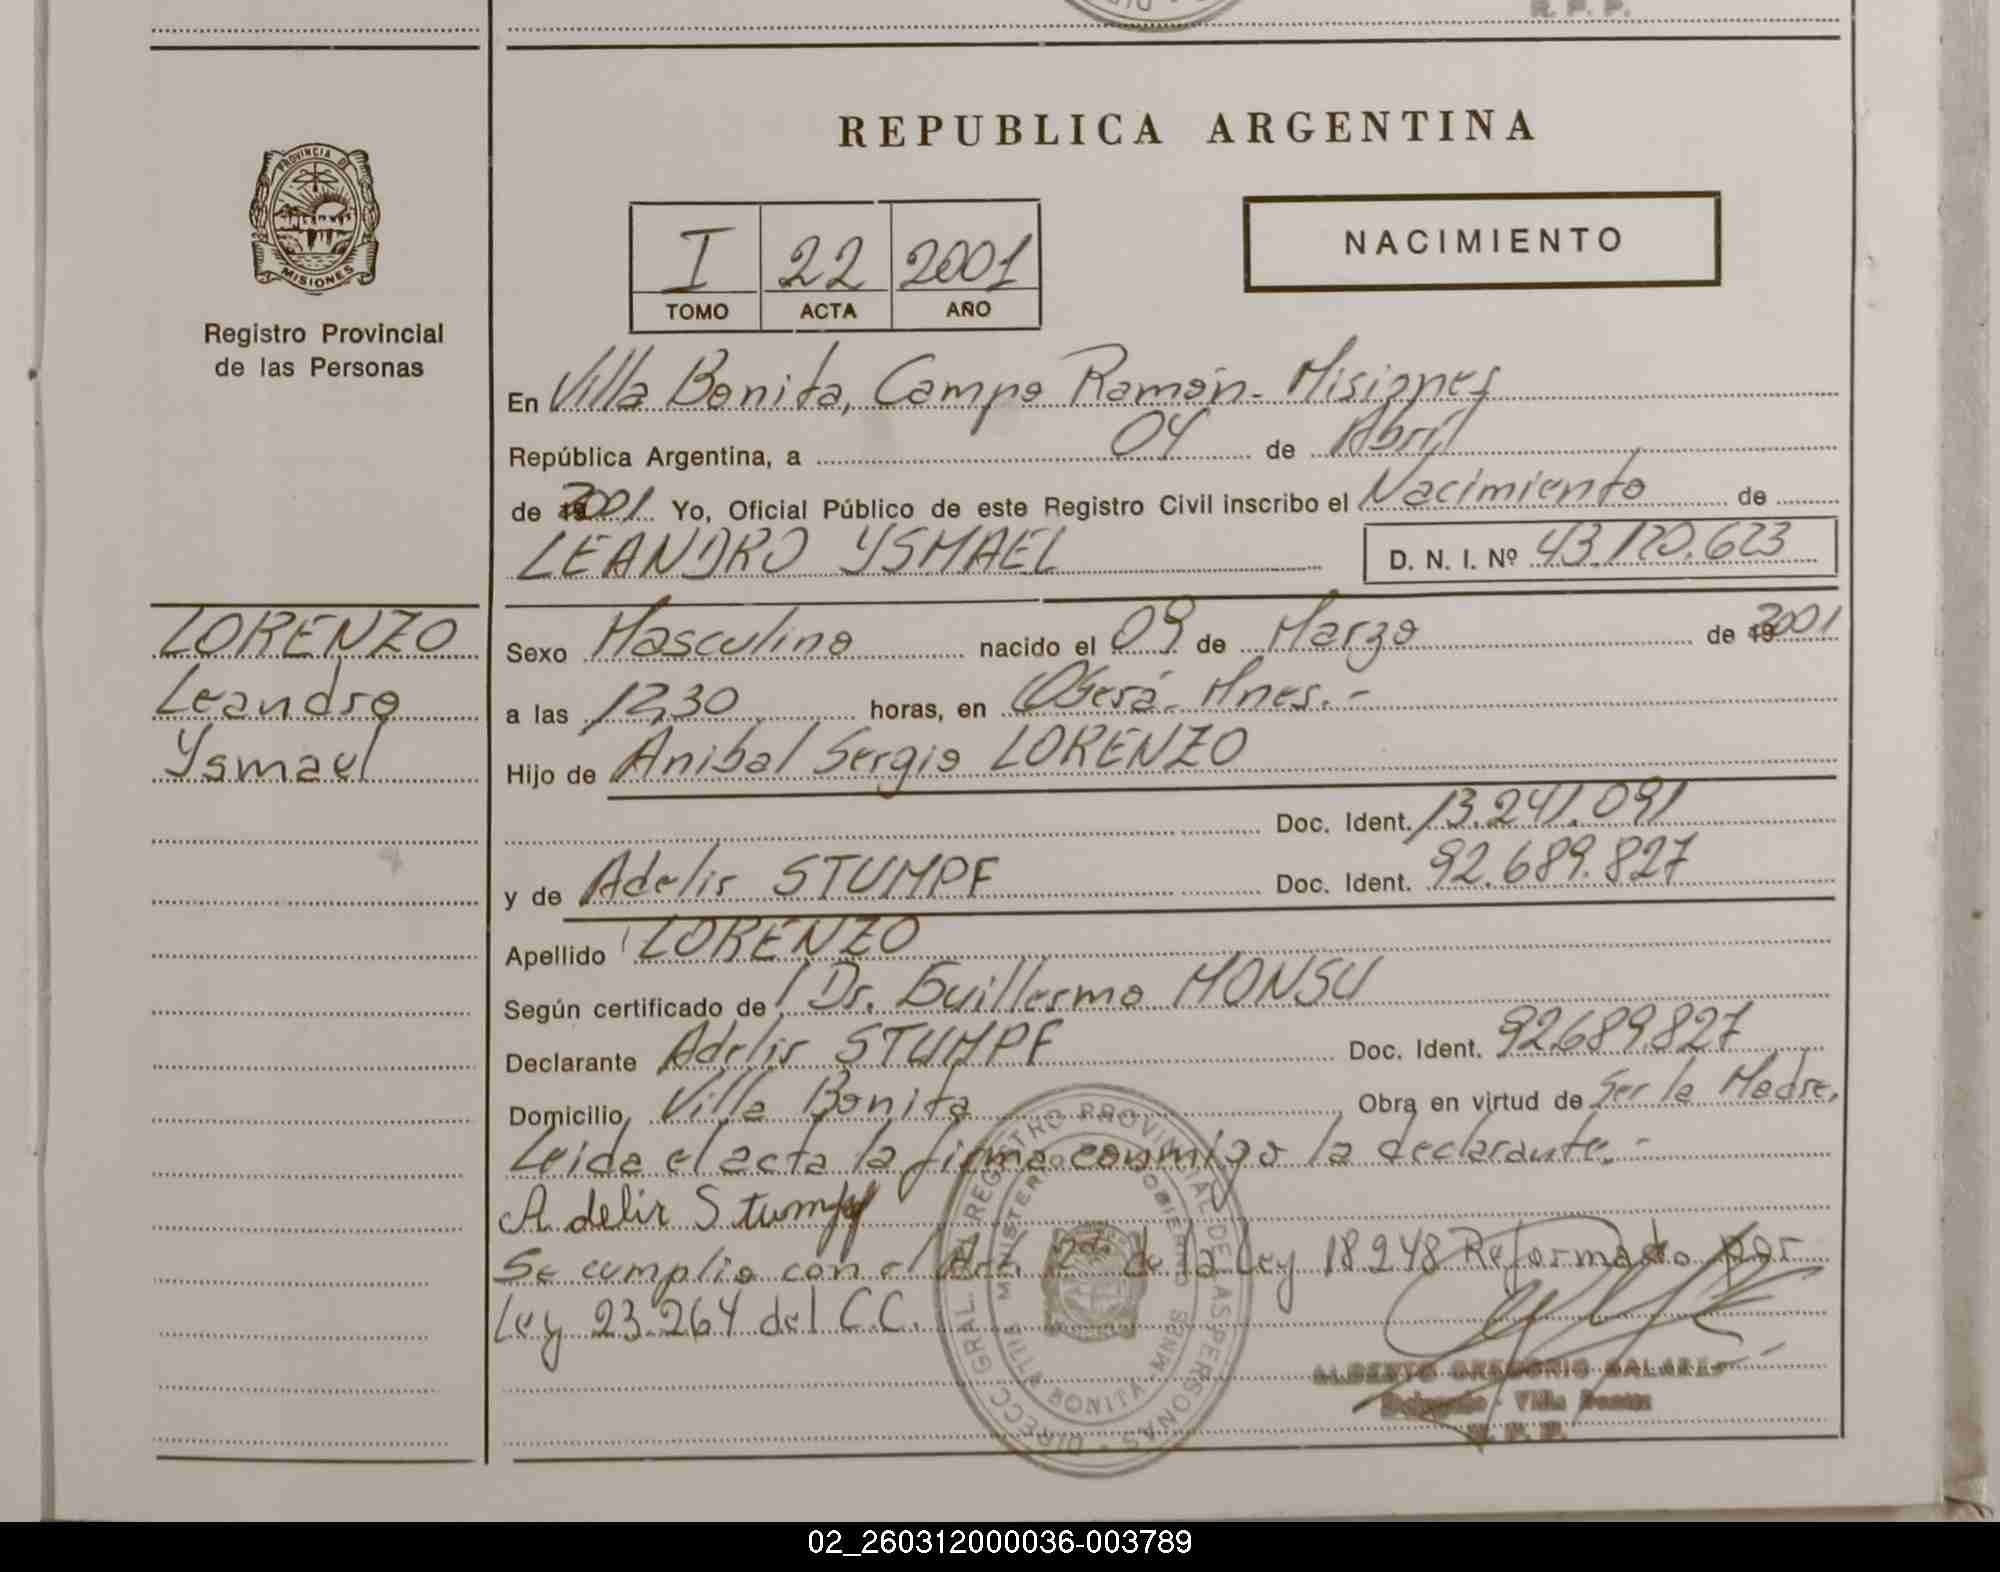 R. P. P.
REPUBLICA ARGENTINA
PROVINCIA DE
MISIONES
Registro Provincial
de las Personas
I 22 2001
TOMO ACTA AÑO
NACIMIENTO
En Villa Bonita, Campo Ramón - Misiones
República Argentina, a 04 de Abril
de 2001 Yo, Oficial Público de este Registro Civil inscribo el Nacimiento de
LEANDRO YSMAEL D. N. I. Nº 43.120.623
LORENZO
Leandro
Ysmael
Sexo Masculino nacido el 09 de Marzo de 2001
a las 12,30 horas, en Oberá - Mnes.-
Hijo de Anibal Sergio LORENZO
Doc. Ident. 13.241.091
y de Adelir STUMPF Doc. Ident. 92.689.827
Apellido LORENZO
Según certificado de Dr. Guillermo MONSU
Declarante Adelir STUMPF Doc. Ident. 92.689.827
Domicilio Villa Bonita Obra en virtud de Ser la Madre,
Leida el acta la firma conmigo la declarante.-
Adelir Stumpf
Se cumplio con el Art. 2do de la Ley 18248 Reformado por
Ley 23.264 del C.C.
DIRECC. GRAL. DEL REGISTRO PROVINCIAL DE LAS PERSONAS
MINISTERIO DE GOBIERNO
VILLA BONITA - MNES
ALBERTO GREGORIO
Delegado - Villa Bonita
R. P. P.
02_260312000036-003789